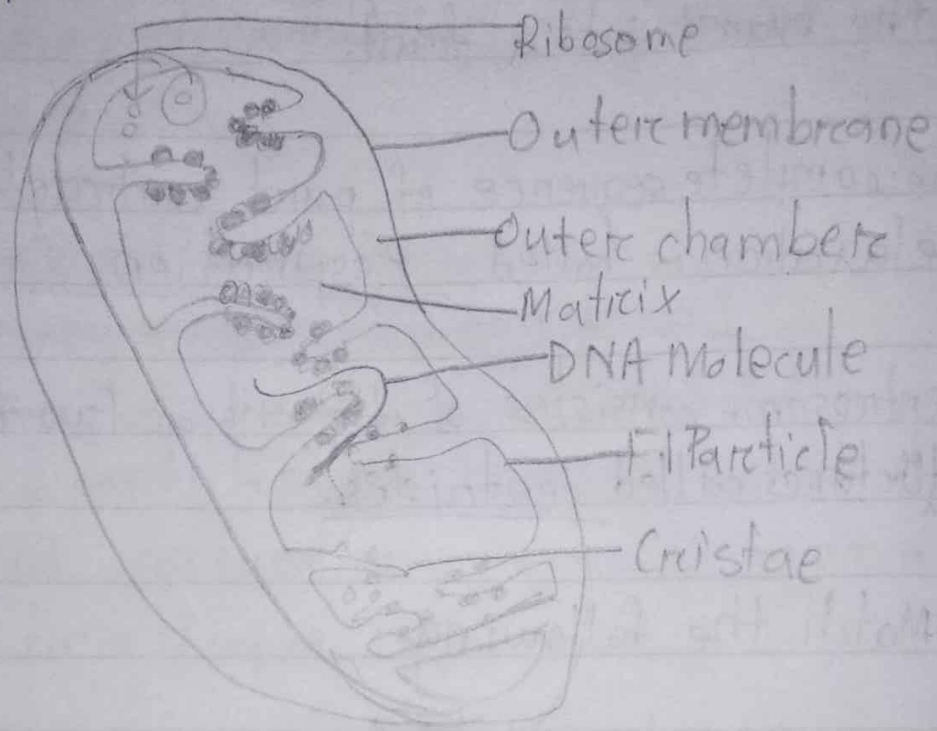 Ribosome
Outerc membrcane
Outerc chamberc
Matrcix
DNA Molecule
F1 Parcticle
Crcistae